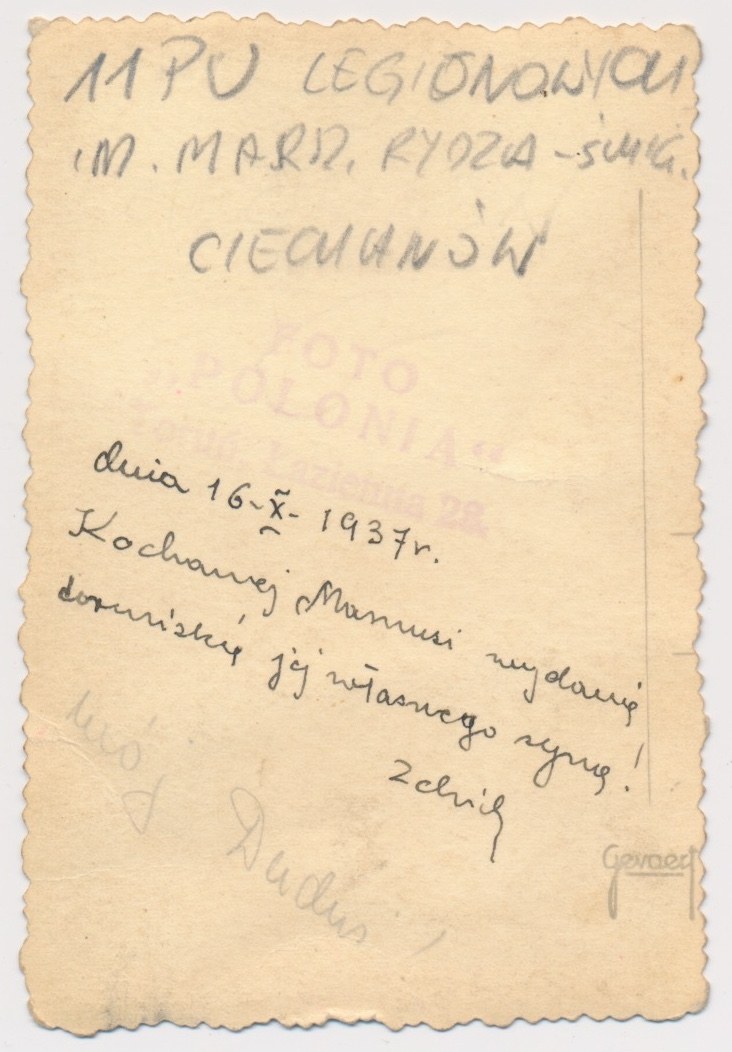 11 PU LEGIONOWYCH
IM. MARSZ. RYDZA-ŚMIG.
CIECHANÓW
FOTO
„POLONIA"
Toruń, Łazienna 28.
dnia 16-X-1937r.
Kochanej Mamusi wydanie
toruńskie jej własnego syna!
Zdzich
mój Daduś!
Gevaert